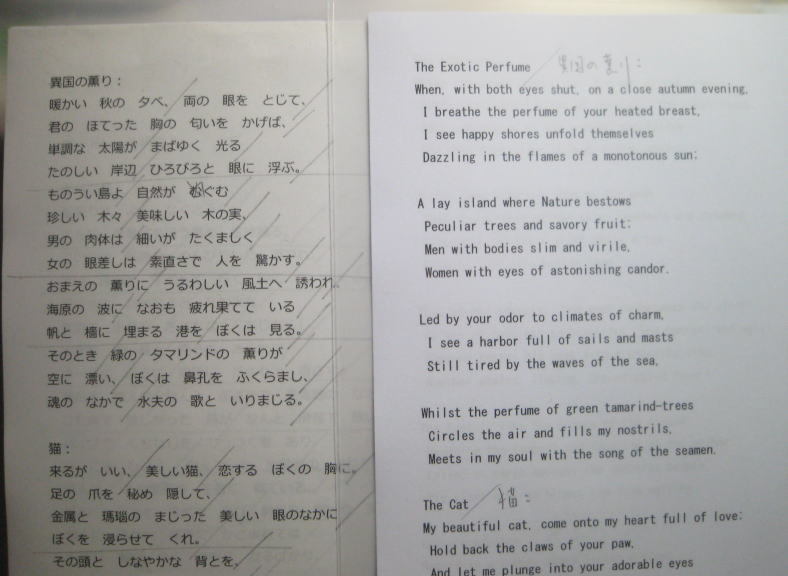 異国の薫り：
暖かい 秋の 夕べ、 両の 眼を とじて、
君の ほてった 胸の 匂いを かげば、
単調な 太陽が まばゆく 光る
たのしい 岸辺 ひろびろと 眼に 浮ぶ。
ものうい島よ 自然が めぐむ
珍しい 木々 美味しい 木の実、
男の 肉体は 細いが たくましく
女の 眼差しは 素直さで 人を 驚かす。
おまえの 薫りに うるわしい 風土へ 誘われ、
海原の 波に なおも 疲れ果てて いる
帆と 檣に 埋まる 港を ぼくは 見る。
そのとき 緑の タマリンドの 薫りが
空に 漂い、 ぼくは 鼻孔を ふくらまし、
魂の なかで 水夫の 歌と いりまじる。
猫：
来るが いい、 美しい猫、 恋する ぼくの 胸に。
足の 爪を 秘め 隠して、
金属と 瑪瑙の まじった 美しい 眼のなかに
ぼくを 浸らせて くれ。
その頭と しなやかな 背とを、
The Exotic Perfume 異国の薫り：
When, with both eyes shut, on a close autumn evening,
I breathe the perfume of your heated breast,
I see happy shores unfold themselves
Dazzling in the flames of a monotonous sun:
A lay island where Nature bestows
Peculiar trees and savory fruit:
Men with bodies slim and virile,
Women with eyes of astonishing candor.
Led by your odor to climates of charm,
I see a harbor full of sails and masts
Still tired by the waves of the sea,
Whilst the perfume of green tamarind-trees
Circles the air and fills my nostrils,
Meets in my soul with the song of the seamen.
The Cat 猫：
My beautiful cat, come onto my heart full of love:
Hold back the claws of your paw,
And let me plunge into your adorable eyes